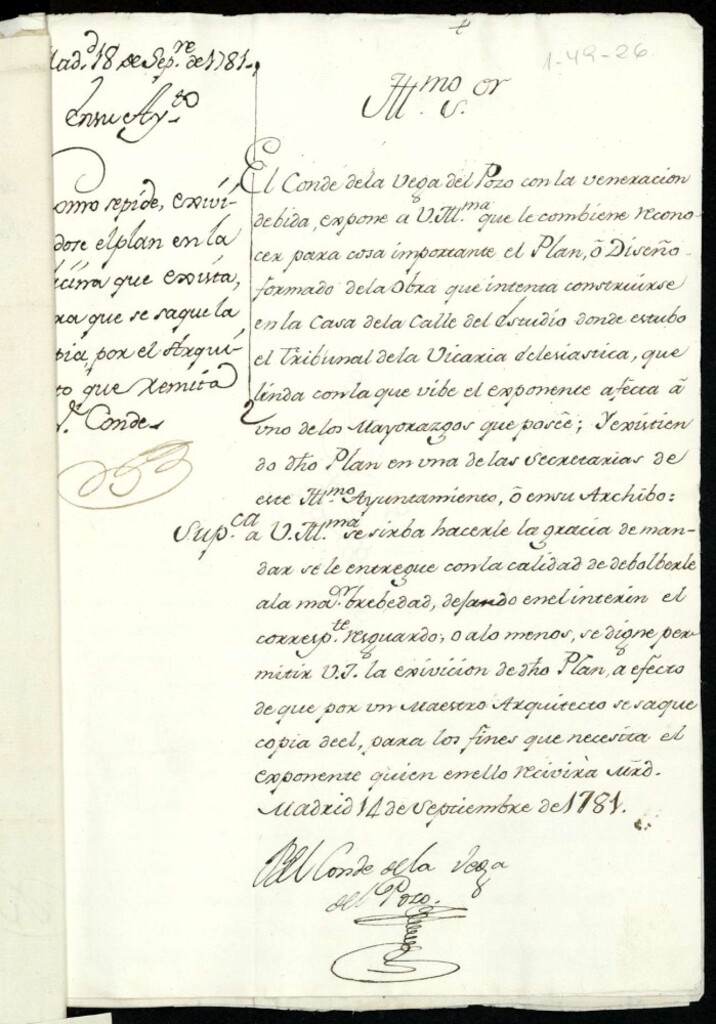 1-49-26
Mad.d 18 de Sep.re de 1781.
En su Ay.to
Como se pide, exivi-
dose el plan en la
icina que exista,
ra que se saque la
pia, por el Arqui-
to que remita
r. Conde
Ill.mo S.or
El Conde de la Vega del Pozo con la veneracion
debida, expone a V.Ill.ma que le combiene recono-
cer para cosa importante el Plan, ó Diseño
formado de la Obra que intenta construirse
en la Casa de la Calle del Estudio donde estubo
el Tribunal de la Vicaria Eclesiastica, que
linda con la que vibe el exponente afecta á
uno de los Mayorazgos que poseé; Y existien
do dho Plan en una de las Secretarias de
este Ill.mo Ayuntamiento, ó en su Archibo:
Sup.ca a V.Ill.ma se sirba hacerle la gracia de man-
dar se le entregue con la calidad de debolberle
a la ma.or brebedad, dejando en el interin el
corresp.te resguardo; o a lo menos, se digne per-
mitir V.I. la exivicion de dho Plan, a efecto
de que por un Maestro Arquitecto se saque
copia de el, para los fines que necesita el
exponente quien en ello recivirà Mrd.
Madrid 14 de Septiembre de 1781.
El Conde de la Vega
del Pozo.